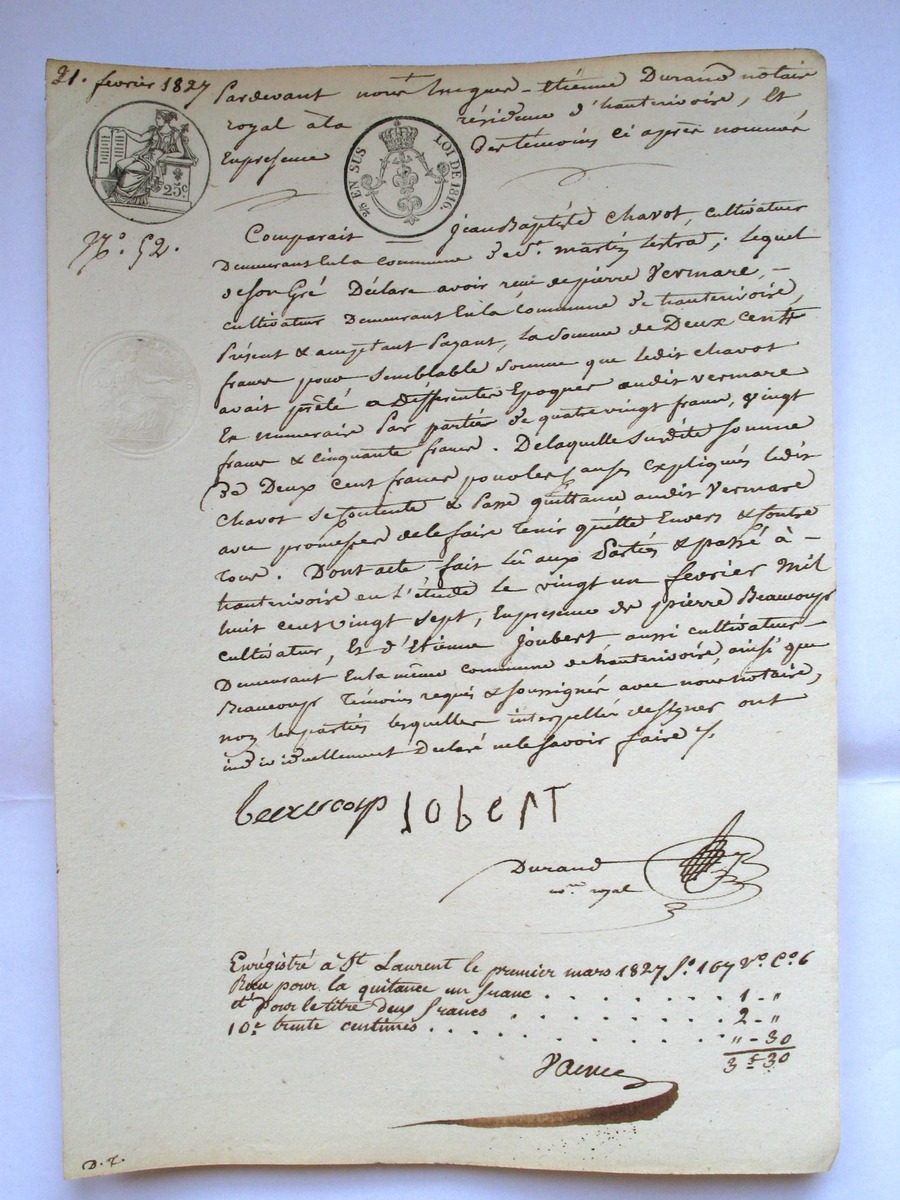 21. fevrier 1827
Pardevant nous Jacques-Etienne Durand notaire
royal à la résidence d'hauterivoire, Et
Enpresence des témoins ci après nommés
25c.
25 EN SUS LOI DE 1816.
N.o 52.
Comparait — Jean Baptiste Chavot, cultivateur
Demeurant En la commune de St. martin lestra, lequel
de son Gré Déclare avoir reçu de pierre Vermare, —
cultivateur Demeurant En la commune de hauterivoire,
Présent & acceptant Payant, la Somme de Deux cents
francs pour semblable somme que ledit Chavot
avait prêté a Différentes Epoques audit Vermare
En numeraire Par parties de quatre vingt francs, & vingt
francs & cinquante francs. De laquelle susdite somme
De Deux cent francs pour les causes expliqués ledit
Chavot se contente & Passe quittance audit Vermare
avec promesses de le faire tenir quitte Envers & contre
Tous. Dont acte fait lû aux Parties & passé à —
hauterivoire en l'étude le vingt un fevrier Mil
huit cent vingt sept, Enpresence de pierre Beaucoup
cultivateur, Et d'Etienne Joubert aussi cultivateur
Demeurant En la même commune de hauterivoire, ainsi que
Beaucoup Témoins requis & soussignés avec nous notaire,
non les parties lesquelles interpellés de signer ont
individuellement Declaré ne le savoir faire /.
beaucoup JObERT
Durand
nre royal
Enrégistré à St Laurent le premier mars 1827 fo 167 Vo Co 6
Reçu pour la quitance un franc . . . . . . . 1 - "
et pour le titre deux francs . . . . . . . 2 - "
10e trente centimes . . . . . . . . " - 30
3 f 30
D. T.